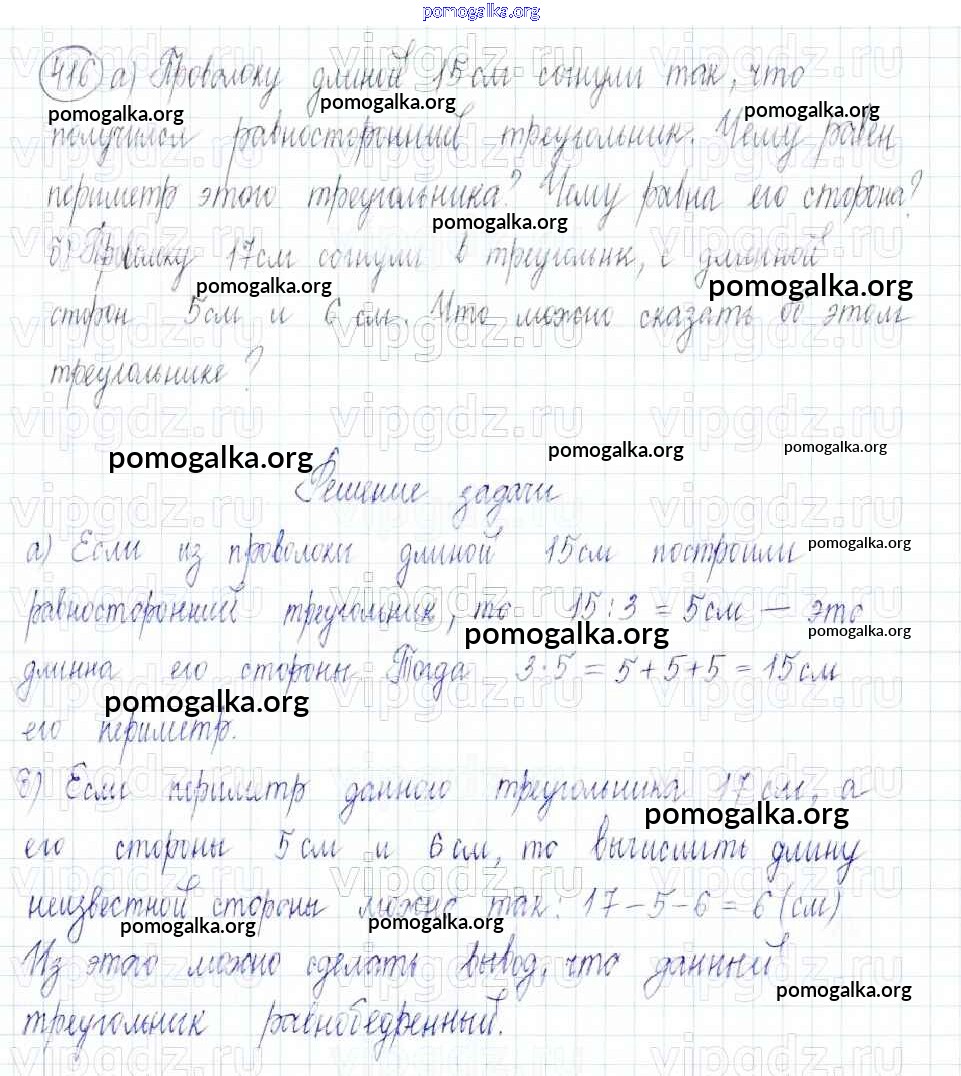 pomogalka.org
416 а) Проволоку длиной 15 см согнули так, что
pomogalka.org pomogalka.org pomogalka.org
получился равносторонний треугольник. Чему равен
периметр этого треугольника? Чему равна его сторона?
pomogalka.org
б) Проволку 17 см согнули в треугольник, с длинной
pomogalka.org pomogalka.org
сторон 5 см и 6 см. Что можно сказать об этом
треугольнике?
pomogalka.org pomogalka.org pomogalka.org
Решение задачи
а) Если из проволоки длиной 15 см построили pomogalka.org
равносторонний треугольник, то 15 : 3 = 5 см — это
pomogalka.org pomogalka.org
длинна его стороны. Тогда 3 · 5 = 5 + 5 + 5 = 15 см
pomogalka.org
его периметр.
б) Если периметр данного треугольника 17 см, а
pomogalka.org
его стороны 5 см и 6 см, то вычислить длину
неизвестной стороны можно так: 17 - 5 - 6 = 6 (см)
pomogalka.org pomogalka.org
Из этого можно сделать вывод, что данный
pomogalka.org
треугольник равнобедренный.
vipgdz.ru